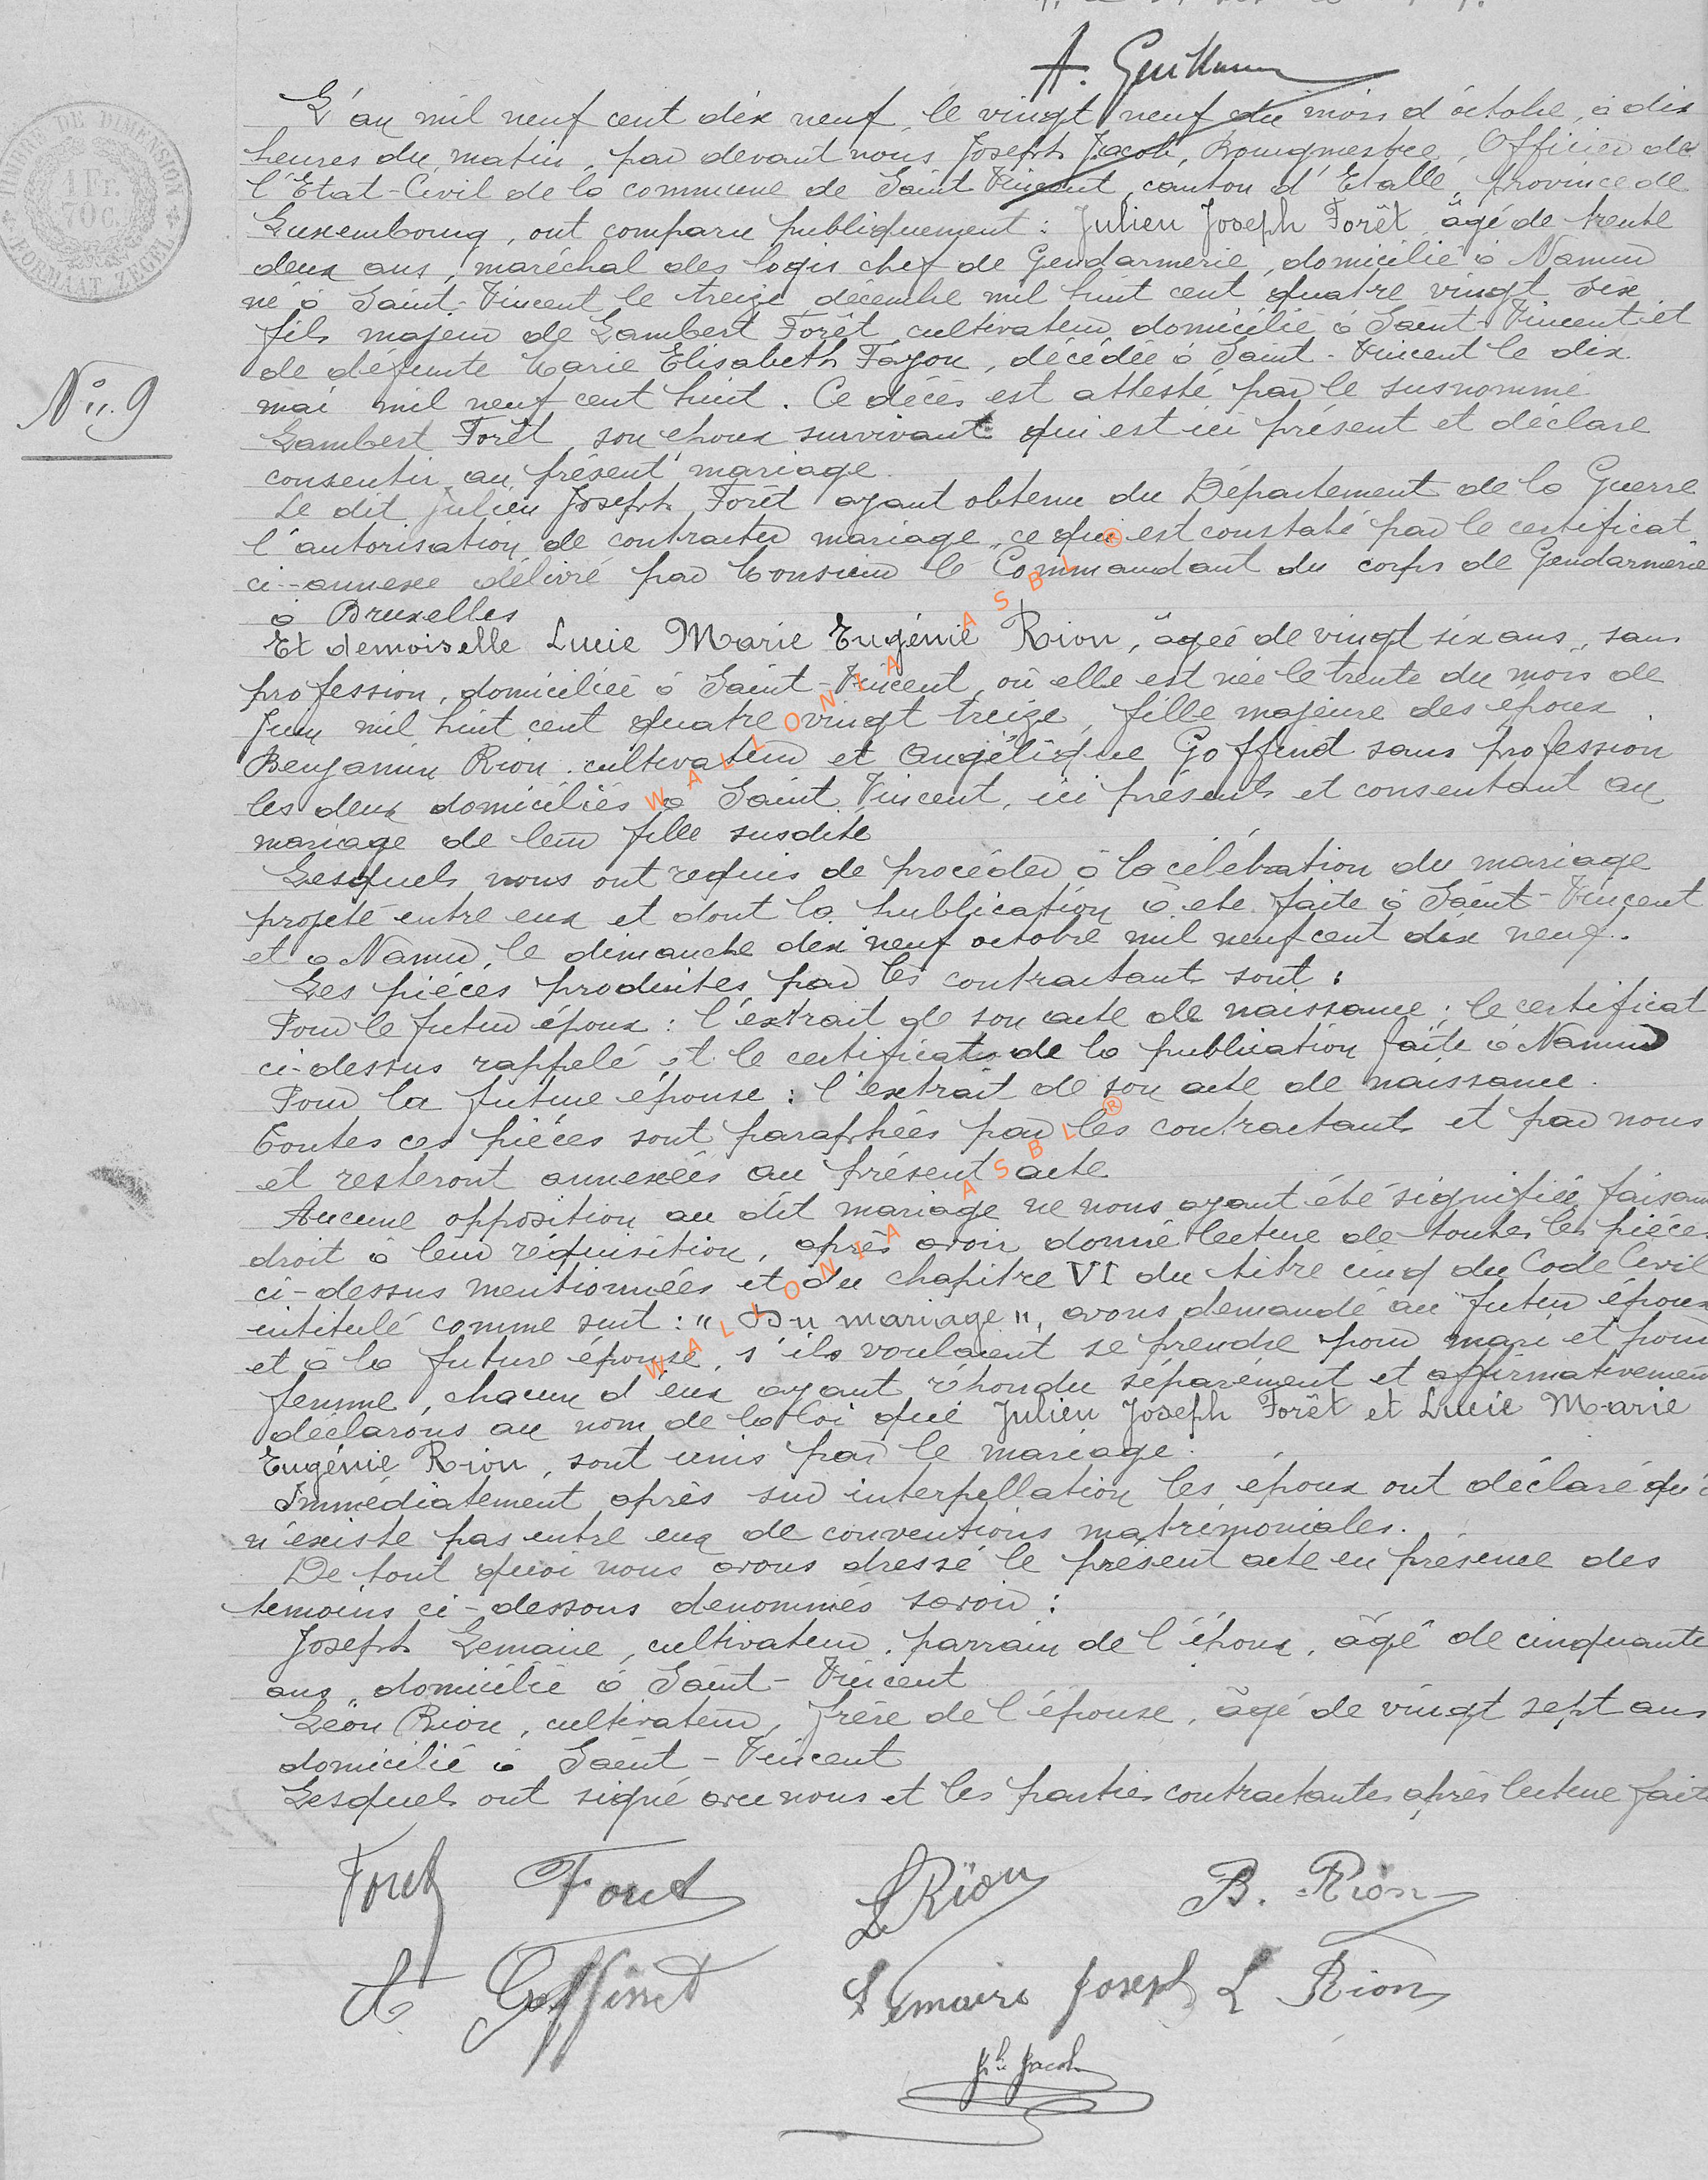 A. Guillaume
L'an mil neuf cent dix neuf, le vingt neuf du mois d'octobre, à dix
heures du matin, par devant nous Joseph Jacob, Bourgmestre, Officier de
l'Etat-Civil de la commune de Saint Vincent, canton d'Etalle, province de
Luxembourg, ont comparu publiquement : Julien Joseph Forêt, âgé de trente
deux ans, maréchal des logis chef de Gendarmerie, domicilié à Namur
né à Saint-Vincent le treize décembre mil huit cent quatre vingt six
fils majeur de Lambert Forêt cultivateur domicilié à Saint-Vincent et
de défunte Marie Elisabeth Fayon, décédée à Saint-Vincent le dix
mai mil neuf cent huit. Ce décès est attesté par le susnommé
N° 9
Lambert Forêt, son époux survivant qui est ici présent et déclare
consentir au présent mariage.
Le dit Julien Joseph Forêt ayant obtenu du Département de la Guerre
l'autorisation de contracter mariage, ce qui est constaté par le certificat
ci-annexé délivré par Monsieur le Commandant du corps de Gendarmerie
à Bruxelles
Et demoiselle Lucie Marie Eugénie Rion, âgée de vingt six ans, sans
profession, domiciliée à Saint-Vincent, où elle est née le trente du mois de
Juin mil huit cent quatre vingt treize, fille majeure des époux
Benjamin Rion cultivateur et Angélique Goffinet sans profession
les deux domiciliés à Saint Vincent, ici présents et consentant au
mariage de leur fille susdite
Lesquels nous ont requis de procéder à la célébration du mariage
projeté entre eux et dont la publication a été faite à Saint-Vincent
et à Namur, le dimanche dix neuf octobre mil neuf cent dix neuf.
Les pièces produites par les contractants sont :
Pour le futur époux : l'extrait de son acte de naissance ; le certificat
ci-dessus rappelé et le certificat de la publication faite à Namur
Pour la future épouse : l'extrait de son acte de naissance.
Toutes ces pièces sont paraphées par les contractants et par nous
et resteront annexées au présent acte
Aucune opposition au dit mariage ne nous ayant été signifiée, faisant
droit à leur réquisition, après avoir donné lecture de toutes les pièces
ci-dessus mentionnées et du chapitre VI du titre cinq du Code Civil
intitulé comme suit : "Du mariage", avons demandé au futur époux
et à la future épouse, s'ils voulaient se prendre pour mari et pour
femme, chacun d'eux ayant répondu séparément et affirmativement
déclarons au nom de la loi que Julien Joseph Forêt et Lucie Marie
Eugénie Rion, sont unis par le mariage.
Immédiatement après sur interpellation les époux ont déclaré qu'il
n'existe pas entre eux de conventions matrimoniales.
De tout quoi nous avons dressé le présent acte en présence des
témoins ci-dessous dénommés savoir :
Joseph Lemaire, cultivateur, parrain de l'époux, âgé de cinquante
ans, domicilié à Saint-Vincent
Léon Rion, cultivateur, frère de l'épouse, âgé de vingt sept ans
domicilié à Saint-Vincent
Lesquels ont signé avec nous et les parties contractantes après lecture faite
Foret Foret L Rion B. Rion
A Goffinet Lemaire Joseph L Rion
Jh Jacob
TIMBRE DE DIMENSION
1 Fr.
70 C.
FORMAAT ZEGEL
WALLONIA ASBL ®
WALLONIA ASBL ®